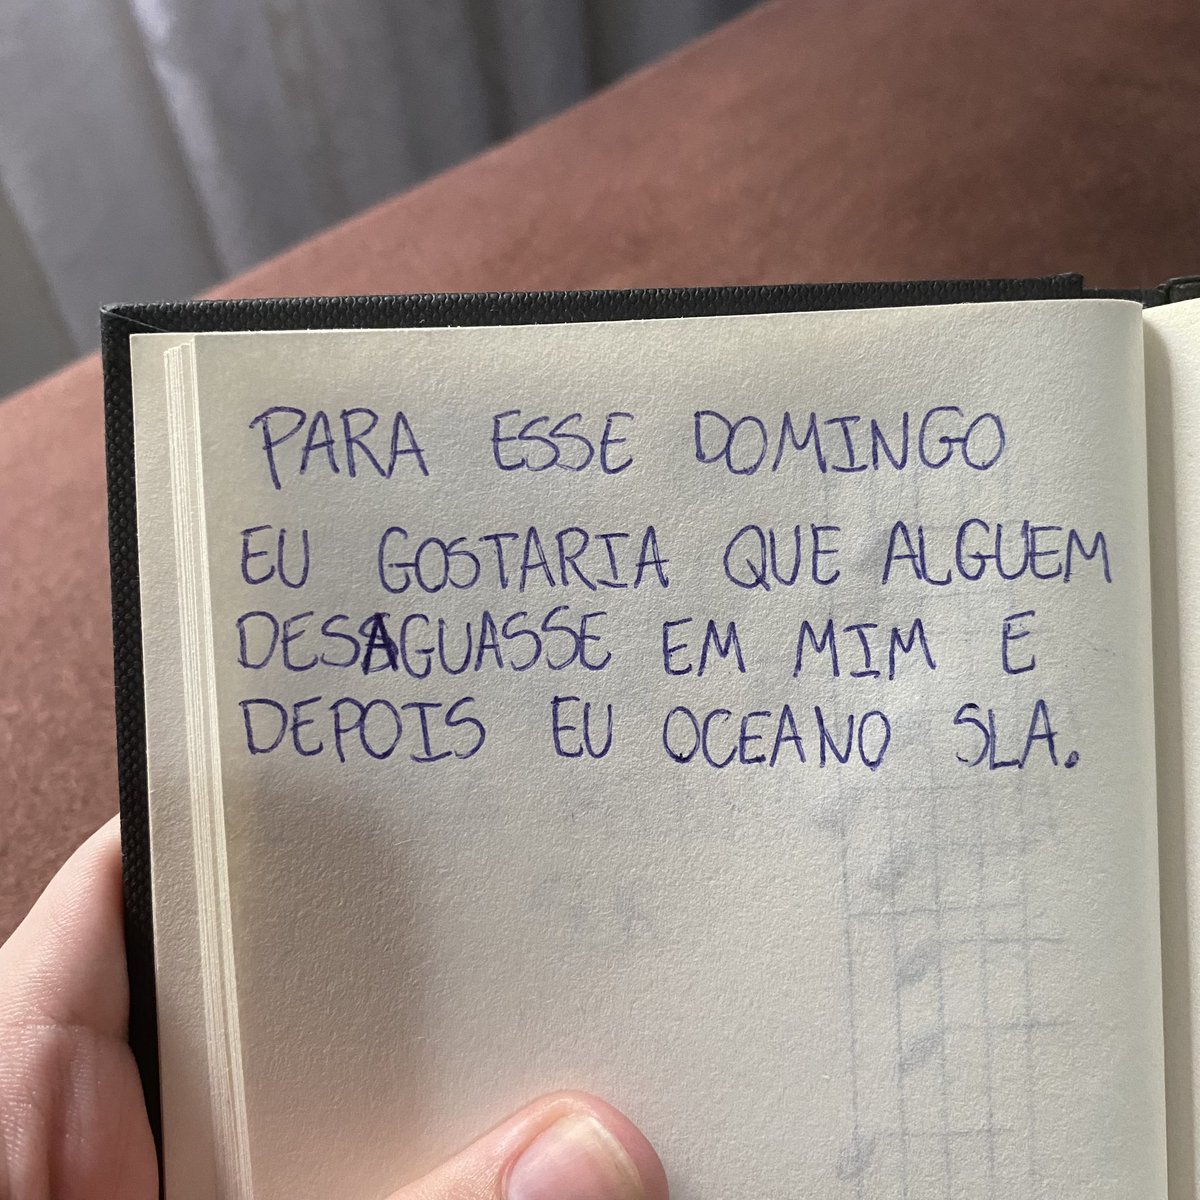 PARA ESSE DOMINGO
EU GOSTARIA QUE ALGUEM
DESAGUASSE EM MIM E
DEPOIS EU OCEANO SLA.